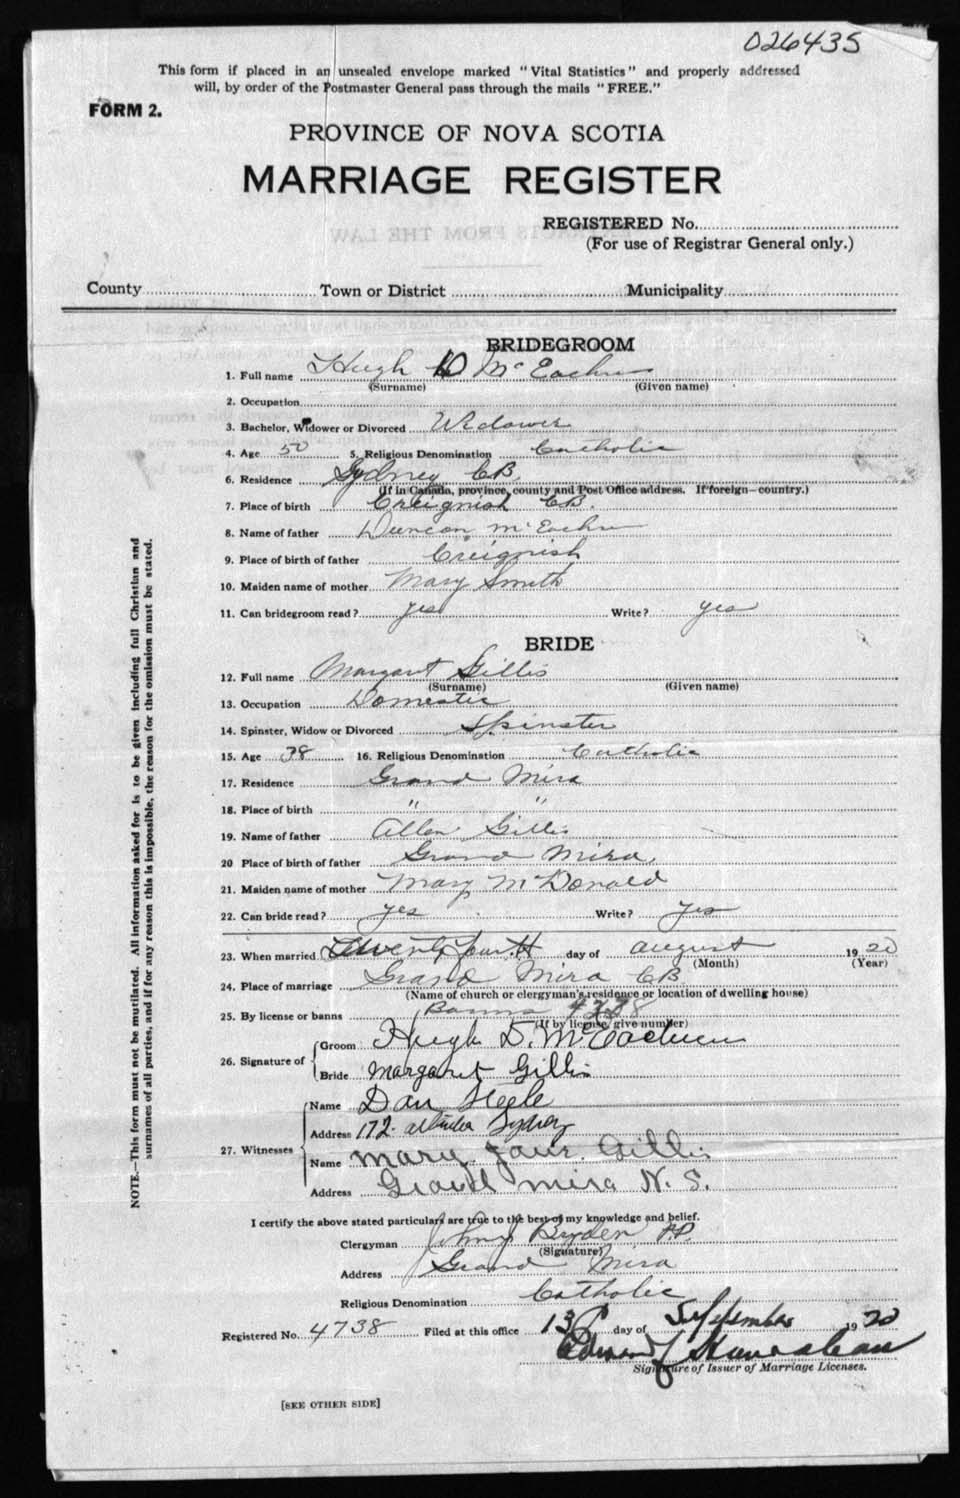 026435
This form if placed in an unsealed envelope marked "Vital Statistics" and properly addressed
will, by order of the Postmaster General pass through the mails "FREE."
FORM 2.
PROVINCE OF NOVA SCOTIA
MARRIAGE REGISTER
REGISTERED No.
(For use of Registrar General only.)
County Town or District Municipality
BRIDEGROOM
1. Full name Hugh D McEachern
(Surname) (Given name)
2. Occupation
3. Bachelor, Widower or Divorced Widower
4. Age 50 5. Religious Denomination Catholic
6. Residence Sydney CB.
(If in Canada, province, county and Post Office address. If foreign—country.)
7. Place of birth Creignish CB.
8. Name of father Duncan McEachern
9. Place of birth of father Creignish
10. Maiden name of mother Mary Smith
11. Can bridegroom read? yes Write? yes
BRIDE
12. Full name Margaret Gillis
(Surname) (Given name)
13. Occupation Domestic
14. Spinster, Widow or Divorced Spinster
15. Age 38 16. Religious Denomination Catholic
17. Residence Grand Mira
18. Place of birth " "
19. Name of father Allan Gillis
20 Place of birth of father Grand Mira
21. Maiden name of mother Mary McDonald
22. Can bride read? yes Write? yes
23. When married Twenty fourth day of august 1920
(Month) (Year)
24. Place of marriage Grand Mira CB.
(Name of church or clergyman's residence or location of dwelling house)
25. By license or banns Banns
(If by license, give number)
26. Signature of
Groom Hugh D. McEachern
Bride Margaret Gillis
27. Witnesses
Name Dan Steele
Address 172 Sydney
Name Mary Gillis
Address Grand Mira N. S.
I certify the above stated particulars are true to the best of my knowledge and belief.
Clergyman P.P.
(Signature)
Address Grand Mira
Religious Denomination Catholic
Registered No. 4738 Filed at this office 13 day of September 1920
Signature of Issuer of Marriage Licenses.
[SEE OTHER SIDE]
NOTE.—This form must not be mutilated. All information asked for is to be given including full Christian and
surnames of all parties, and if for any reason this is impossible, the reason for the omission must be stated.